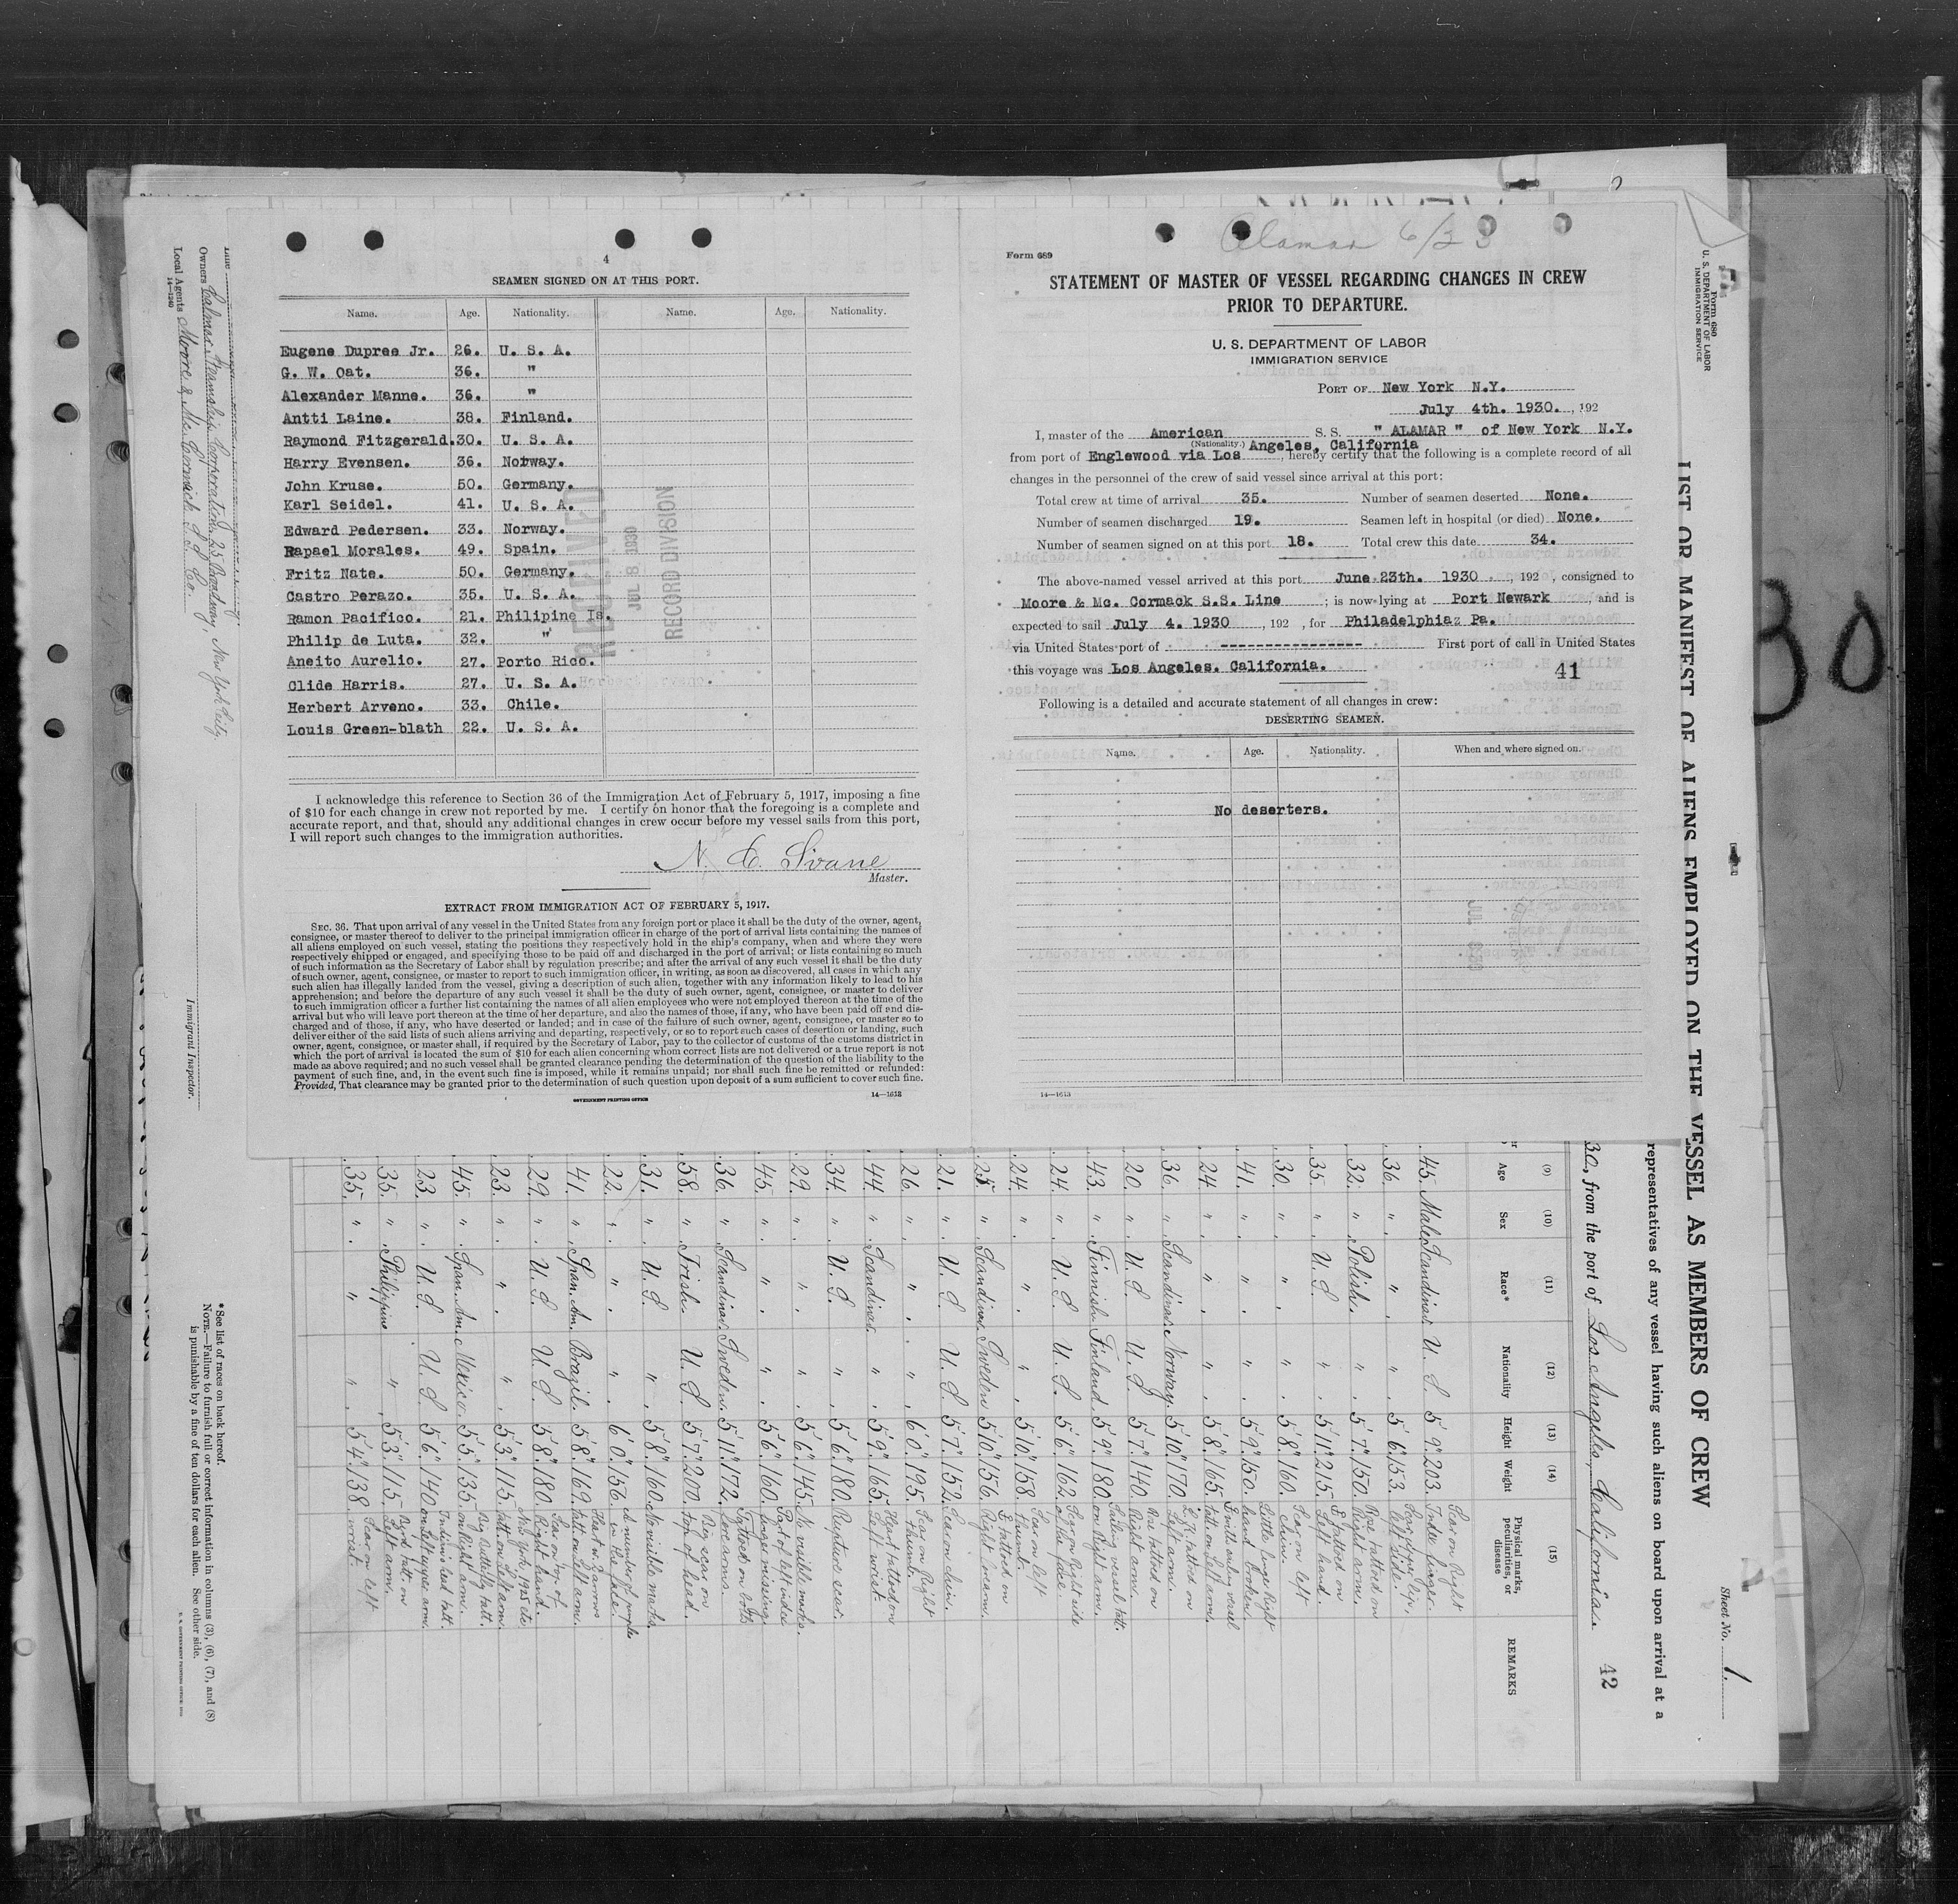 4
SEAMEN SIGNED ON AT THIS PORT.
Name. Age. Nationality. Name. Age. Nationality.
Eugene Dupree Jr. 26. U. S. A.
G. W. Oat. 36. "
Alexander Manne. 36. "
Antti Laine. 38. Finland.
Raymond Fitzgerald. 30. U. S. A.
Harry Evensen. 36. Norway.
John Kruse. 50. Germany.
Karl Seidel. 41. U. S. A.
Edward Pedersen. 33. Norway.
Rapael Morales. 49. Spain.
Fritz Nate. 50. Germany.
Castro Perazo. 35. U. S. A.
Ramon Pacifico. 21. Philipine Is.
Philip de Luta. 32. "
Aneito Aurelio. 27. Porto Rico.
Clide Harris. 27. U. S. A.
Herbert Arveno. 33. Chile.
Louis Green-blath 22. U. S. A.
RECEIVED
JUL 8 1930
RECORD DIVISION
I acknowledge this reference to Section 36 of the Immigration Act of February 5, 1917, imposing a fine
of $10 for each change in crew not reported by me. I certify on honor that the foregoing is a complete and
accurate report, and that, should any additional changes in crew occur before my vessel sails from this port,
I will report such changes to the immigration authorities.
Master.
EXTRACT FROM IMMIGRATION ACT OF FEBRUARY 5, 1917.
SEC. 36. That upon arrival of any vessel in the United States from any foreign port or place it shall be the duty of the owner, agent,
consignee, or master thereof to deliver to the principal immigration officer in charge of the port of arrival lists containing the names of
all aliens employed on such vessel, stating the positions they respectively hold in the ship's company, when and where they were
respectively shipped or engaged, and specifying those to be paid off and discharged in the port of arrival; or lists containing so much
of such information as the Secretary of Labor shall by regulation prescribe; and after the arrival of any such vessel it shall be the duty
of such owner, agent, consignee, or master to report to such immigration officer, in writing, as soon as discovered, all cases in which any
such alien has illegally landed from the vessel, giving a description of such alien, together with any information likely to lead to his
apprehension; and before the departure of any such vessel it shall be the duty of such owner, agent, consignee, or master to deliver
to such immigration officer a further list containing the names of all alien employees who were not employed thereon at the time of the
arrival but who will leave port thereon at the time of her departure, and also the names of those, if any, who have been paid off and dis-
charged and of those, if any, who have deserted or landed; and in case of the failure of such owner, agent, consignee, or master so to
deliver either of the said lists of such aliens arriving and departing, respectively, or so to report such cases of desertion or landing, such
owner, agent, consignee, or master shall, if required by the Secretary of Labor, pay to the collector of customs of the customs district in
which the port of arrival is located the sum of $10 for each alien concerning whom correct lists are not delivered or a true report is not
made as above required; and no such vessel shall be granted clearance pending the determination of the question of the liability to the
payment of such fine, and, in the event such fine is imposed, while it remains unpaid; nor shall such fine be remitted or refunded:
Provided, That clearance may be granted prior to the determination of such question upon deposit of a sum sufficient to cover such fine.
GOVERNMENT PRINTING OFFICE 14—1613
Alamar 6/23
Form 689
STATEMENT OF MASTER OF VESSEL REGARDING CHANGES IN CREW
PRIOR TO DEPARTURE.
U. S. DEPARTMENT OF LABOR
IMMIGRATION SERVICE
PORT OF New York N.Y.
July 4th. 1930. , 192
I, master of the American S. S. " ALAMAR " of New York N.Y.
(Nationality.)
from port of Englewood via Los Angeles, California , hereby certify that the following is a complete record of all
changes in the personnel of the crew of said vessel since arrival at this port:
Total crew at time of arrival 35. Number of seamen deserted None.
Number of seamen discharged 19. Seamen left in hospital (or died) None.
Number of seamen signed on at this port 18. Total crew this date 34.
The above-named vessel arrived at this port June 23th. 1930 , 192 , consigned to
Moore & Mc. Cormack S.S. Line ; is now lying at Port Newark , and is
expected to sail July 4. 1930 , 192 , for Philadelphia Pa.
via United States port of ---------------- First port of call in United States
this voyage was Los Angeles. California.
41
Following is a detailed and accurate statement of all changes in crew:
DESERTING SEAMEN.
Name. Age. Nationality. When and where signed on.
No deserters.
14—1613
Form 680
U. S. DEPARTMENT OF LABOR
IMMIGRATION SERVICE
LIST OR MANIFEST OF ALIENS EMPLOYED ON THE VESSEL AS MEMBERS OF CREW
Sheet No. 1.
representatives of any vessel having such aliens on board upon arrival at a
30, from the port of Los Angeles, California.
42
(9) (10) (11) (12) (13) (14) (15)
Age Sex Race* Nationality Height Weight Physical marks, peculiarities, or disease REMARKS
45. Male Scandinav. U. S. 5'9" 203. Scar on Right Index finger.
36. " " " 5'6" 153. Scar upper lip, left side.
32. " Polish. " 5'7" 150. Rose tattoed on Right arm.
35. " U. S " 5'11" 215. tattoed on Left hand.
30. " " " 5'8" 160. Scar on left chin.
41. " " " 5'9" 150. Little finger Right hand broken.
24. " " " 5'8" 165. sailing vessel tatt. on Left arm.
36. " Scandinav. Norway. 5'10" 170. tattoed on Left arm.
20. " U. S. U. S. 5'7" 140. Rose tattoed on Right arm.
43. " Finnish. Finland 5'9" 180. Sailing vessel tatt. on Right arm.
24. " U. S. U. S. 5'6" 162. Scar on Right side of the face.
24. " " " 5'10" 158. Scar on left thumb.
25. " Scandinav. Sweden 5'10" 156. tattoed on Right arm.
21. " U. S. U. S. 5'7" 152. Scar on chin.
26. " " " 6'0" 195. Scar on Right thumb.
44. " Scandinav. " 5'9" 165. Heart tattoed on Left wrist.
34. " U. S. " 5'6" 180. Rupture scar.
29. " " " 5'6" 145. No visible marks.
45. " " " 5'6" 160. Part of left index finger missing.
36. " Scandinav. Sweden. 5'11" 172. Tattoed on both fore arms.
58. " Irish. U. S. 5'7" 200. Big scar on top of head.
31. " U. S " 5'8" 160. No visible marks.
22. " " " 6'0" 156. A number of pimples in the face.
41. " Span. Am. Brazil. 5'8" 169. Heart w. 2 arrows tatt. on Left arm.
29. " U. S U. S. 5'8" 180. Scar on top of Right hand.
23. " " " 5'3" 115. New York 1925 etc. tatt. on Left arm.
45. " Span. Am. Mexico. 5'5" 135. Big Butterfly tatt. on Right arm.
23. " U. S. U. S. 5'6" 140. Indians head tatt. on Left upper arm.
35. " Philippine " 5'3" 115. Bird tatt. on Left arm.
35. " " " 5'4" 138. Scar on left wrist.
*See list of races on back hereof.
NOTE.—Failure to furnish full or correct information in columns (3), (6), (7), and (8)
is punishable by a fine of ten dollars for each alien. See other side.
Line
Owners Calmar Steamship Corporation, 25 Broadway, New York City.
Local Agents Moore & Mc. Cormack S. S. Co.
14—1240
Immigrant Inspector.